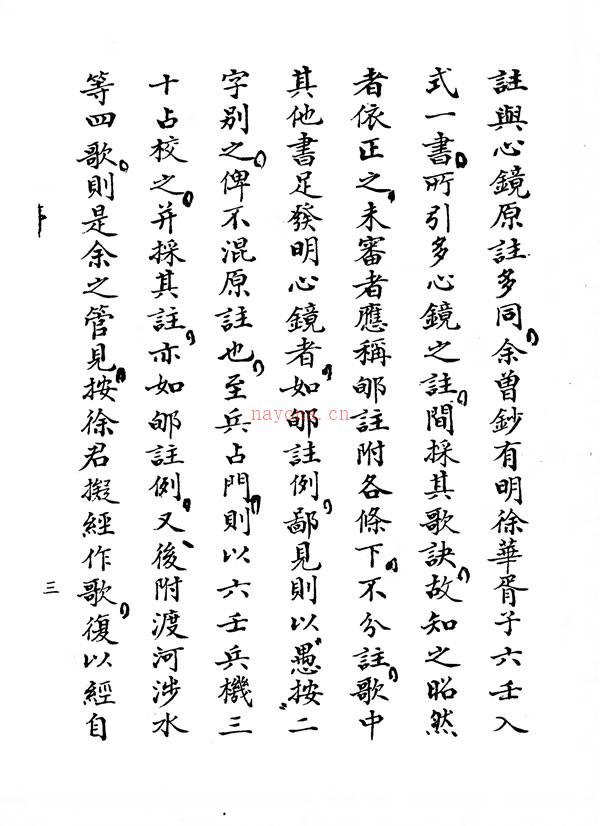 註與心鏡原註多同，余曾鈔有明徐華胥子六壬入
式一書，所引多心鏡之註，間採其歌訣，故知之昭然
者依正之，未審者應稱邮註附各條下，不分註，歌中
其他書足發明心鏡者，如邮註例，鄙見則以“愚按”二
字别之，俾不混原註也，至兵占門，則以六壬兵機三
十占校之，并採其註，亦如邮註例，又、後附渡河涉水
等四歌，則是余之管見，按徐君擬經作歌，復以經自
三
nayona.cn